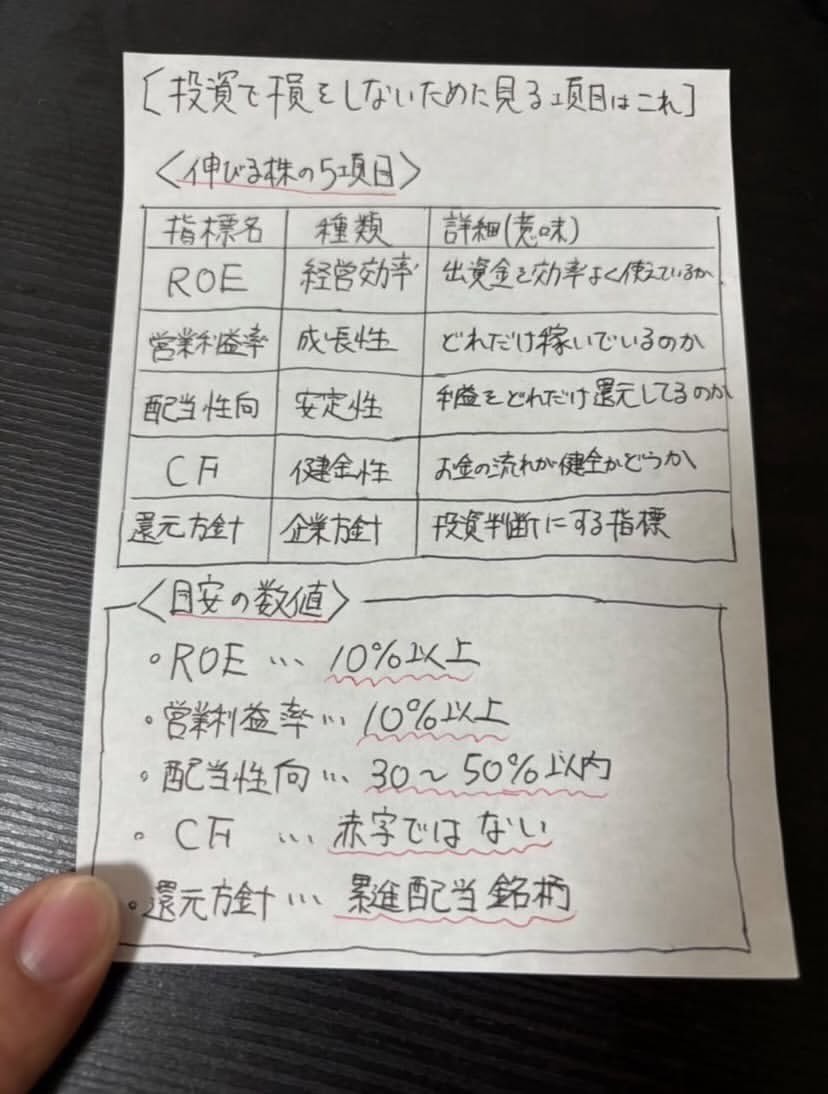 [投資で損をしないために見る項目はこれ]
〈伸びる株の5項目〉
指標名 種類 詳細(意味)
ROE 経営効率 出資金を効率よく使えているか
営業利益率 成長性 どれだけ稼いでいるのか
配当性向 安定性 利益をどれだけ還元してるのか
CF 健全性 お金の流れが健全かどうか
還元方針 企業方針 投資判断にする指標
〈目安の数値〉
・ROE… 10%以上
・営業利益率… 10%以上
・配当性向… 30〜50%以内
・CF … 赤字ではない
・還元方針… 累進配当銘柄